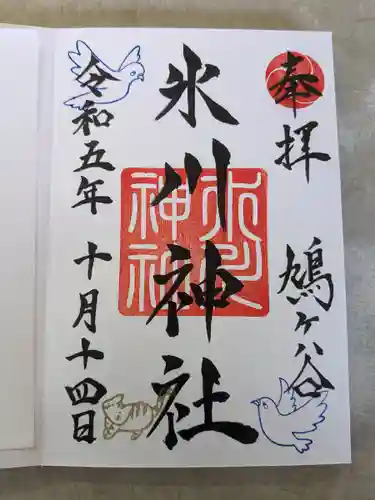 奉拝
鳩ヶ谷
氷川神社
令和五年
十月十四日